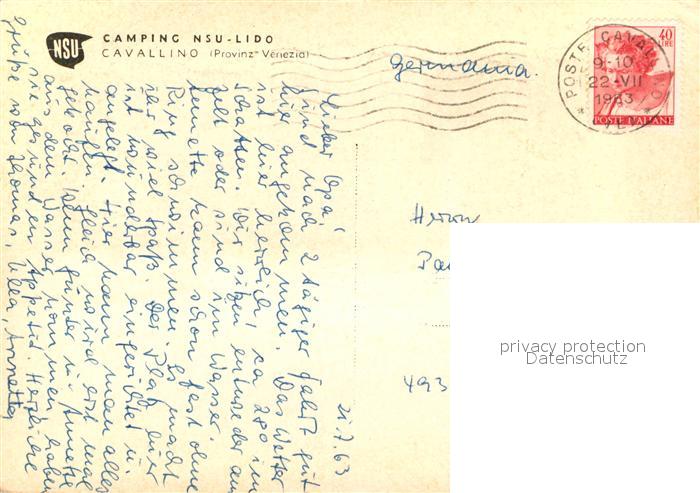 NSU
CAMPING NSU-LIDO
CAVALLINO (Provinz Venezia)
Germania.
POSTE CAVALLINO
9-10
22-VII
1963
VE
40
LIRE
POSTE ITALIANE
21.7.63
Lieber Opa!
Sind nach 2 tägiger Fahrt gut
hier angekommen. Das Wetter
ist hier herrlich, ca 28° im
Schatten. Wir sitzen entweder am
Zelt oder sind im Wasser.
Annette kann schon fast ohne
Ring schwimmen. Es macht
ihr viel Spaß. Der Platz hier
ist wunderbar eingerichtet u.
angelegt. Hier kann man alles
kaufen. Gleich wird erst mal
gekocht. Wenn Günter u. Annette
aus dem Wasser kommen haben
sie gesunden Appetit. Herzliche
Grüße von Thomas, Ulla, Annette
Herrn
493
privacy protection
Datenschutz